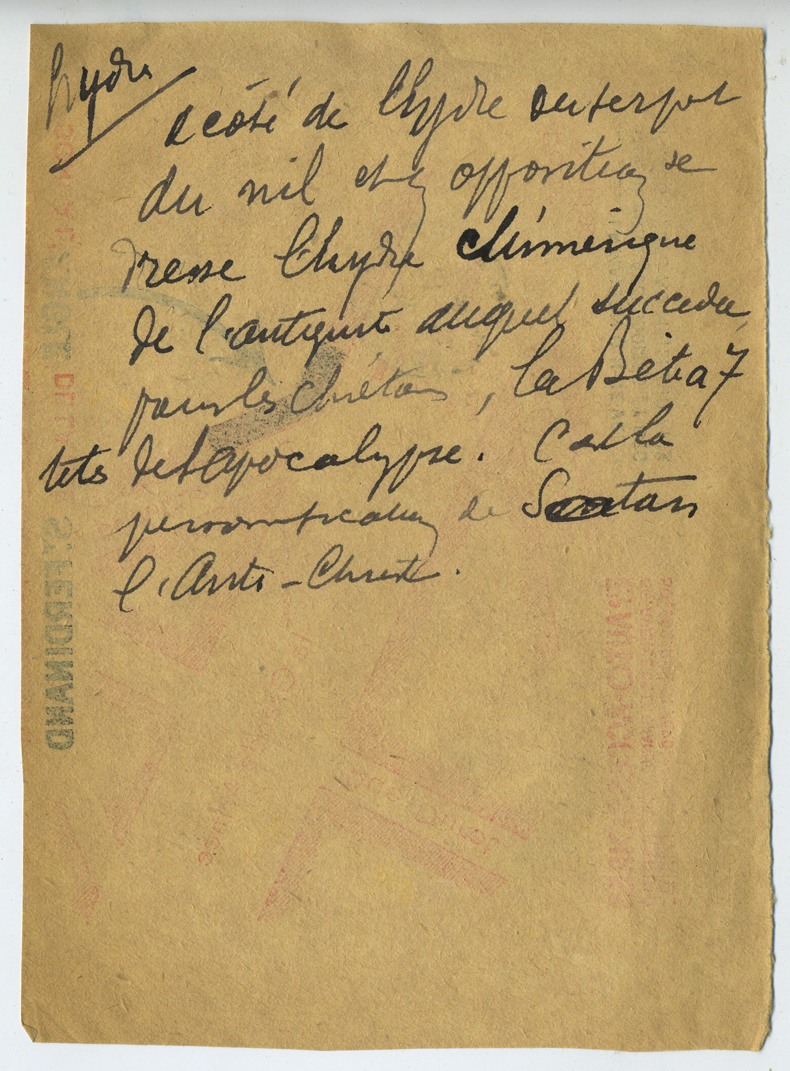 hydre
a côté de l'hydre ou serpent
du nil et en opposition se
dresse l'hydre chimérique
de l'antiquité auquel succède
pour les chrétiens, la Bête a 7
têtes de l'apocalypse. C'est la
personnification de Satan
l'Anti-Christ.
ST FERDINAND